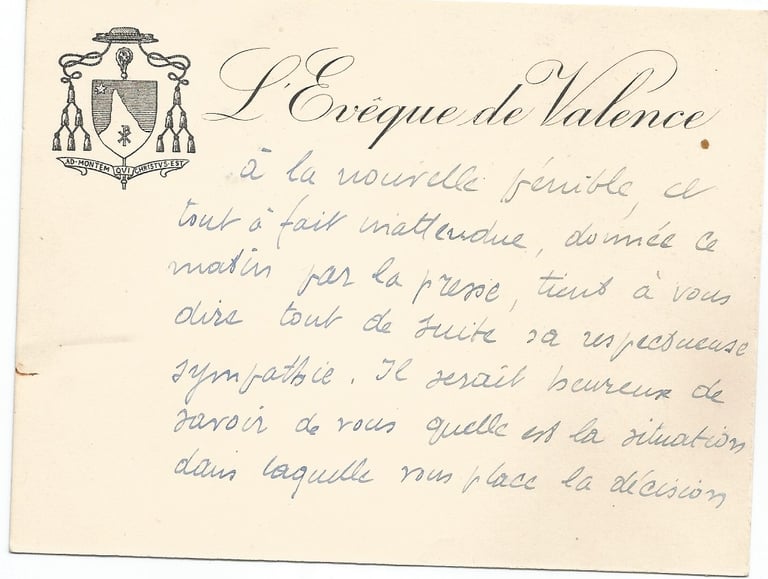 L'Evêque de Valence
AD·MONTEM QUI CHRISTVS·EST
à la nouvelle pénible, et
tout à fait inattendue, donnée ce
matin par la presse, tient à vous
dire tout de suite sa respectueuse
sympathie. Il serait heureux de
savoir de vous quelle est la situation
dans laquelle vous place la décision